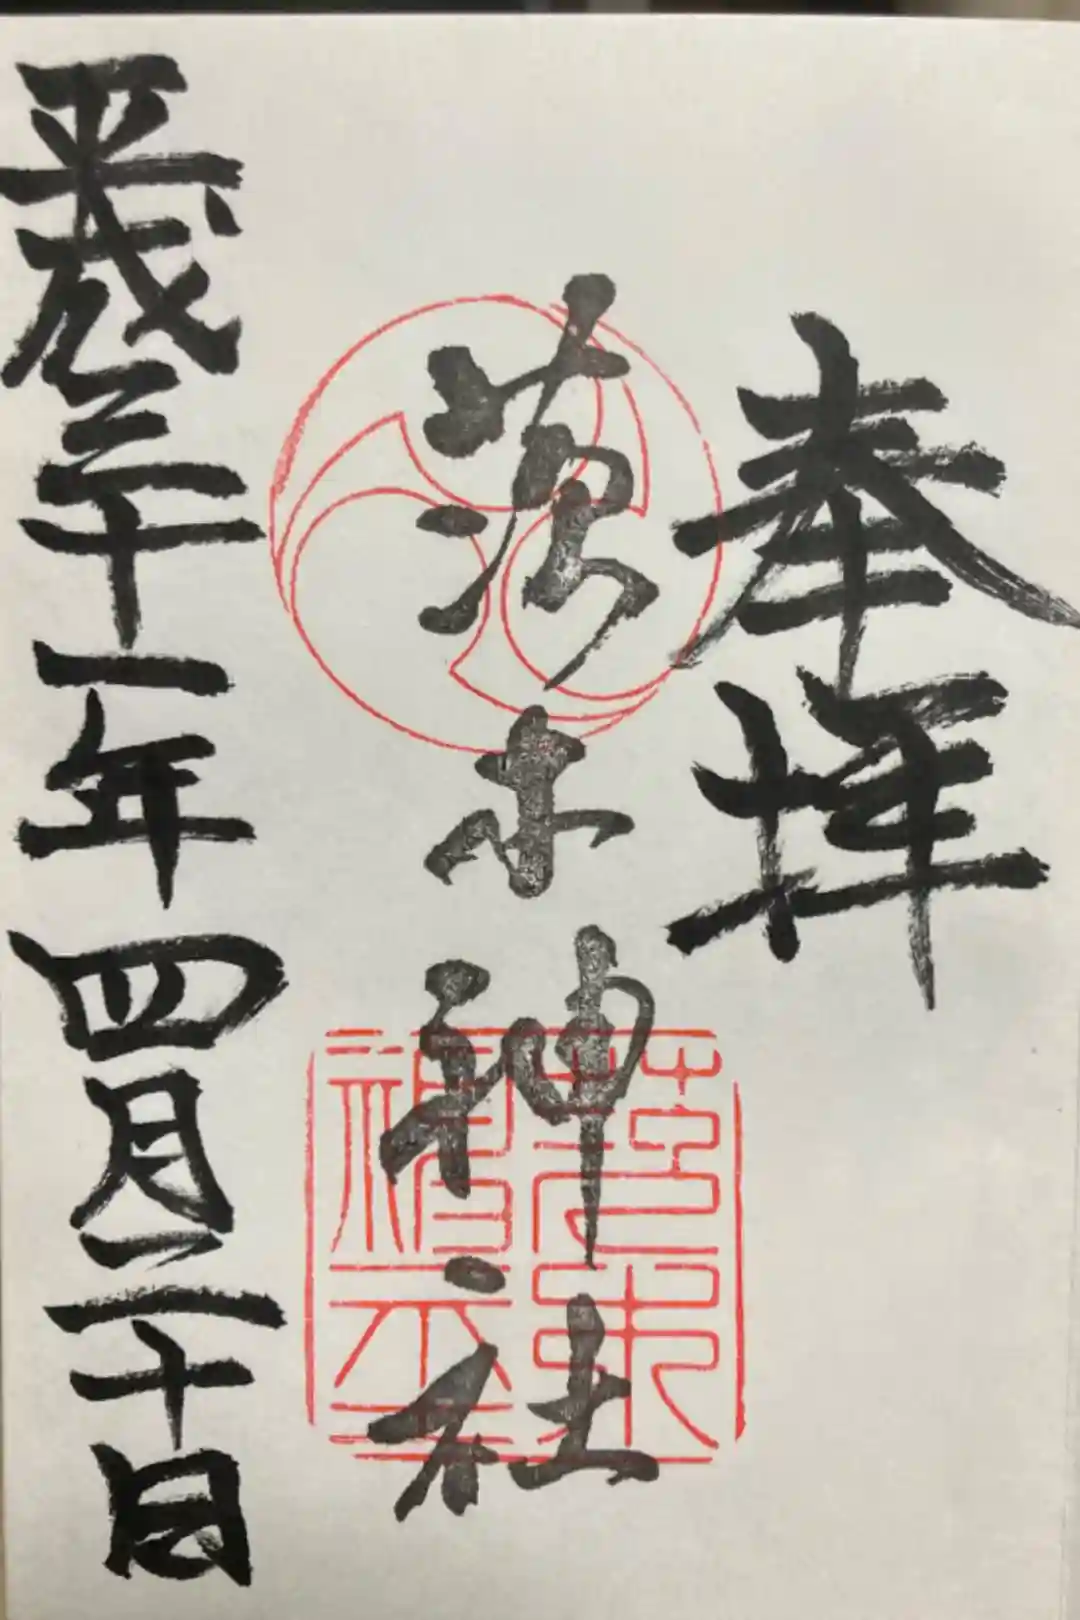 奉拝
木神社
平成三十一年四月二十日